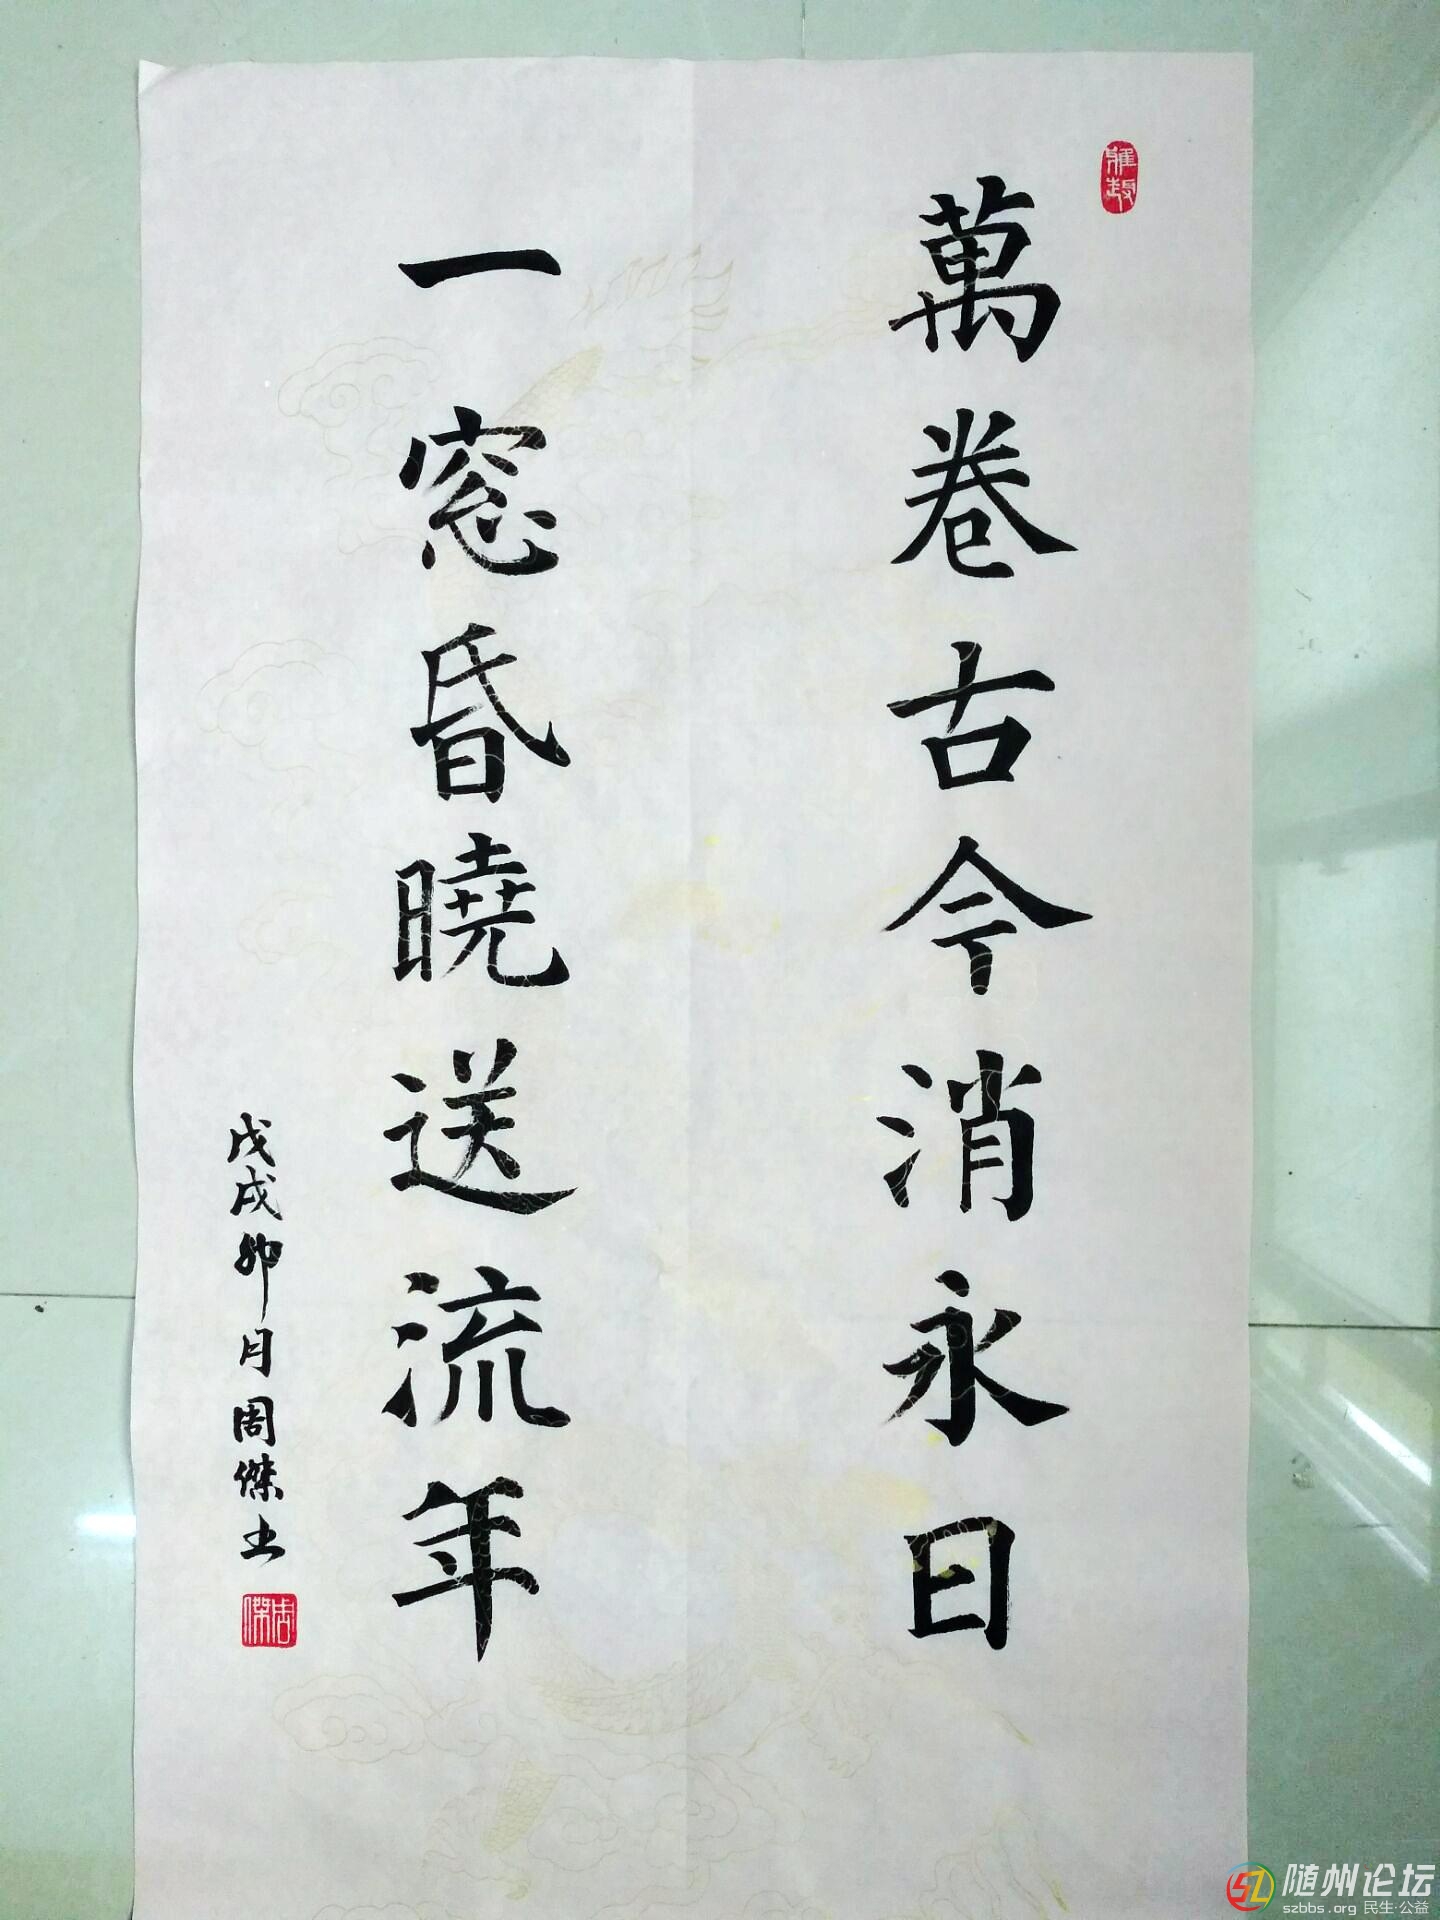 萬卷古今消永日
一窓昏曉送流年
戊戌卯月周傑书
周傑
随州论坛
szbbs.org 民生·公益